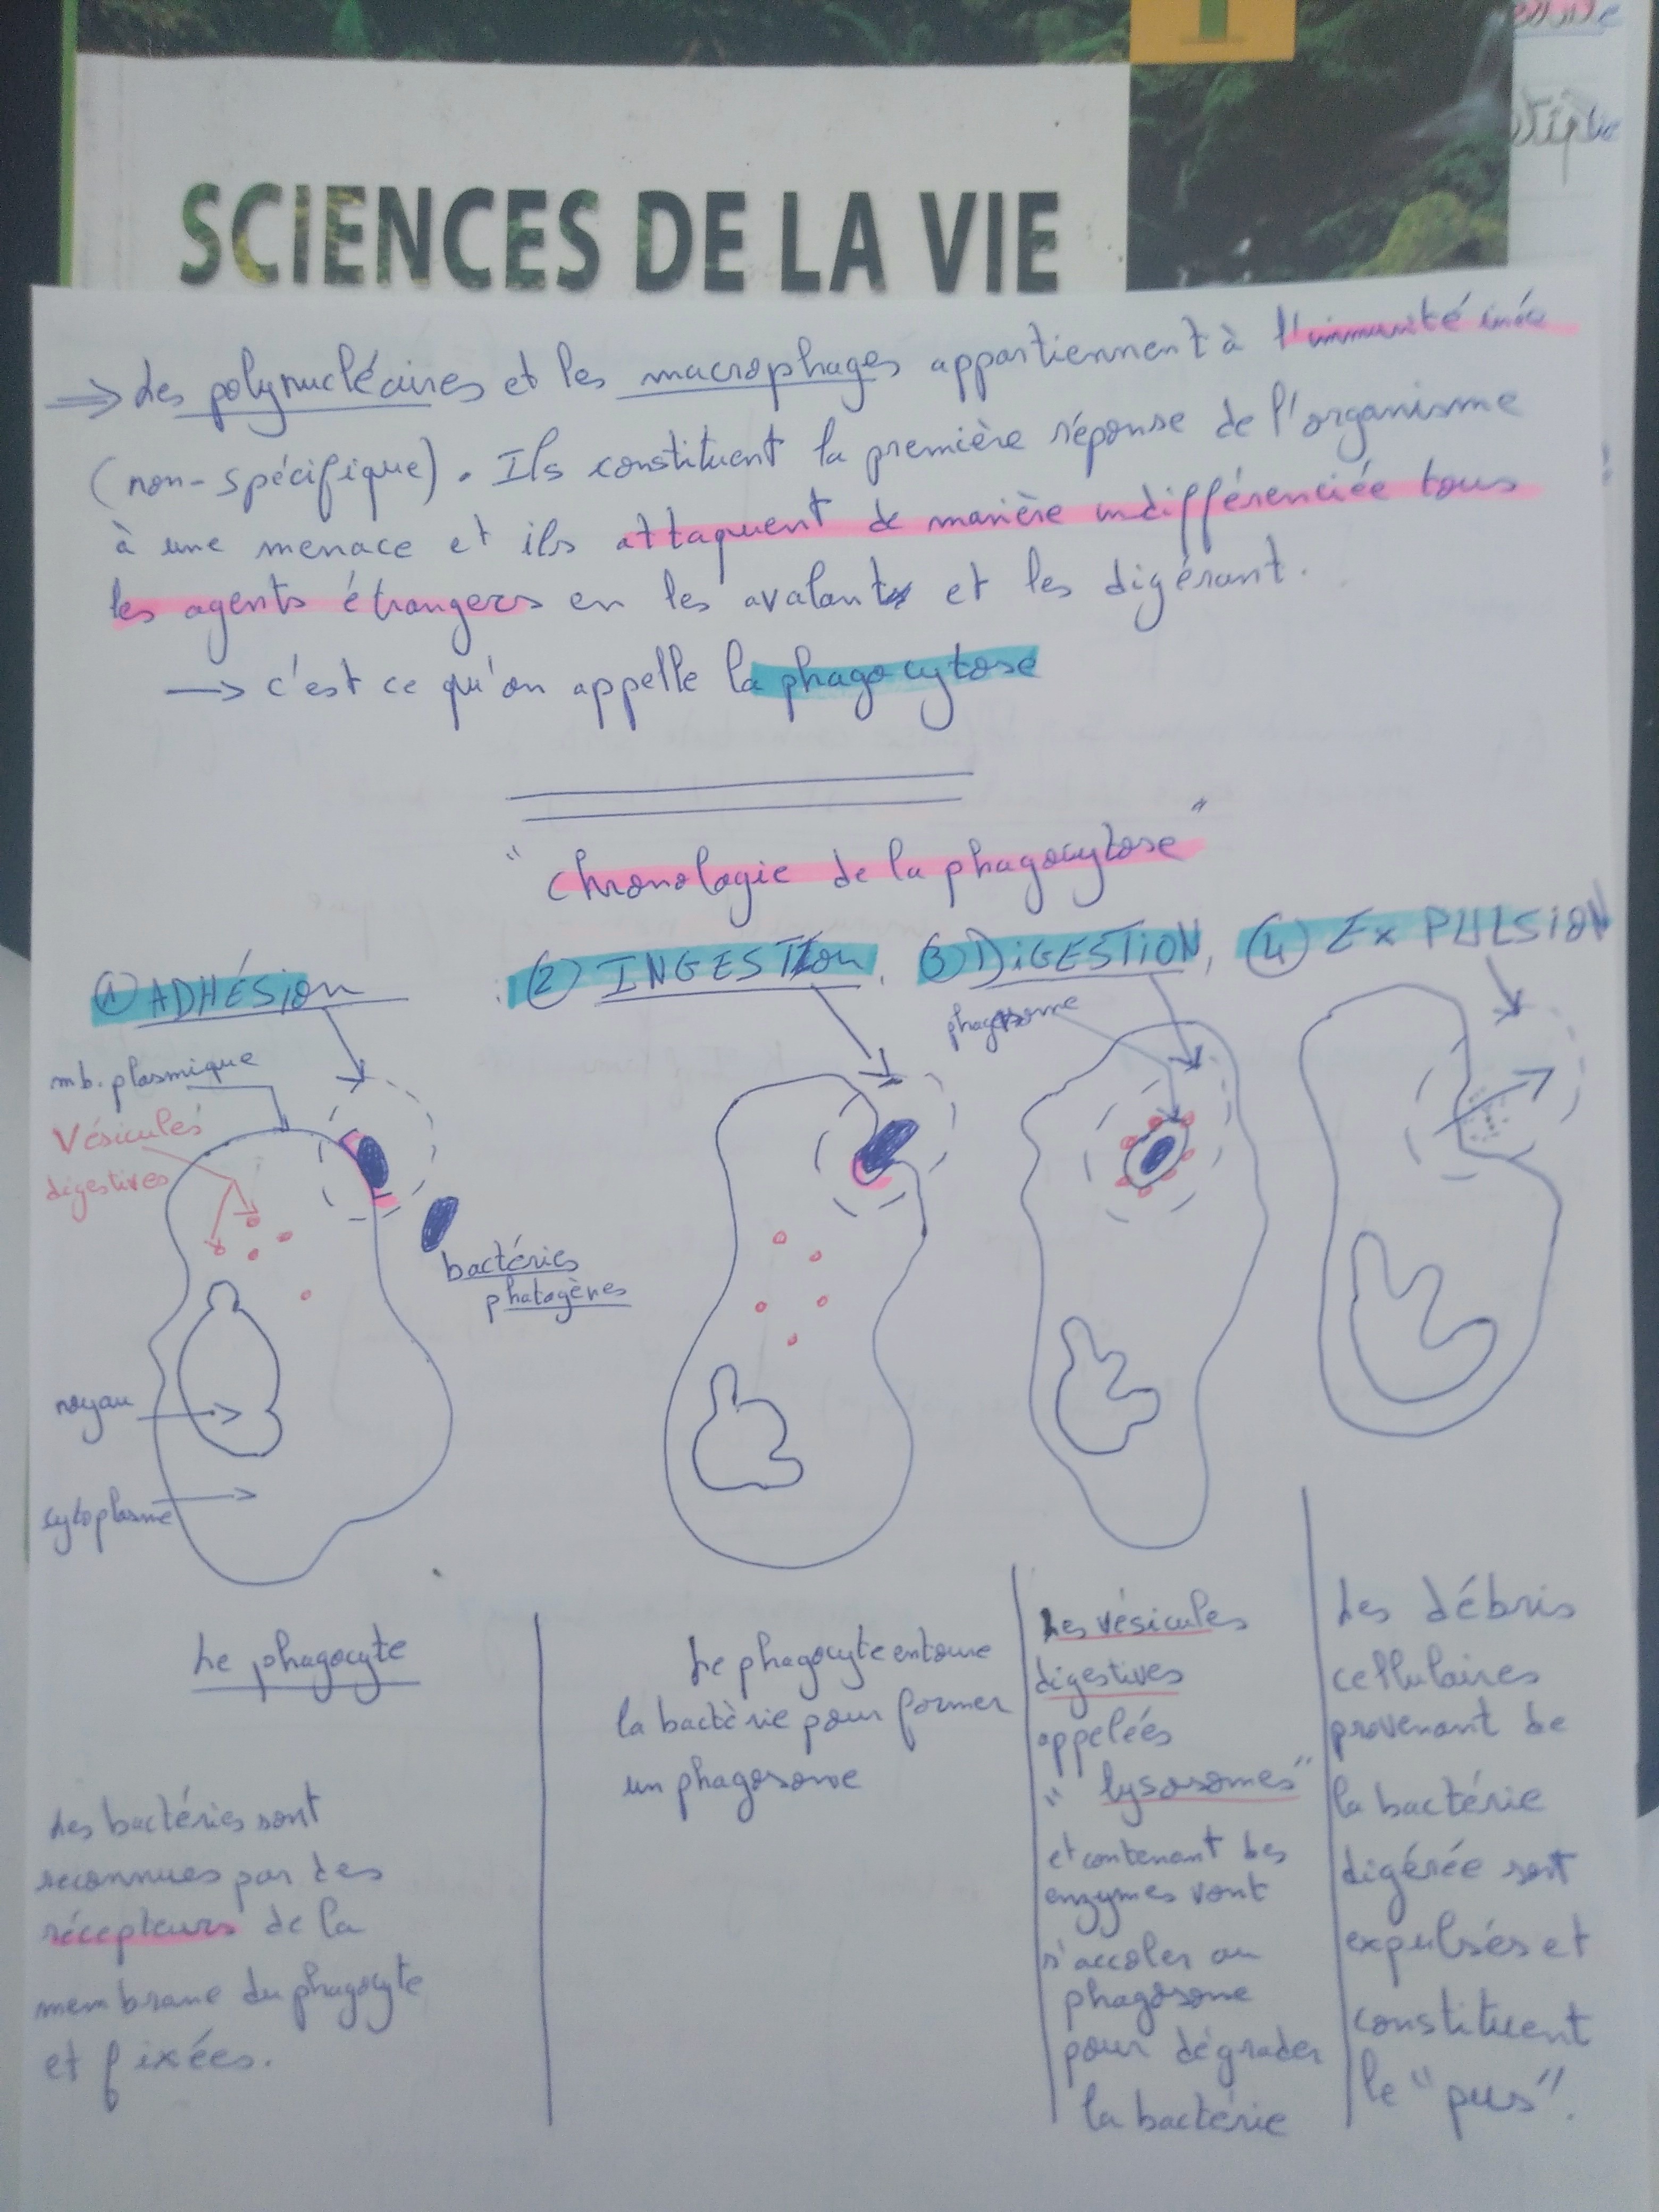 SCIENCES DE LA VIE
=> Les polynucléaires et les macrophages appartiennent à l'immunité innée
(non-spécifique). Ils constituent la première réponse de l'organisme
à une menace et ils attaquent de manière indifférenciée tous
les agents étrangers en les avalant et les digérant.
→ c'est ce qu'on appelle la phagocytose
"chronologie de la phagocytose"
① ADHÉSion
② INGESTIon,
③ DiGESTiON,
④ ExPULSiON
mb. plasmique
Vésicules
digestives
bactéries
phatogènes
noyau
cytoplasme
phagosome
Le phagocyte
Les bactéries sont
reconnues par des
récepteurs de la
membrane du phagocyte
et fixées.
Le phagocyte entoure
la bactèrie pour former
un phagosome
Les vésicules
digestives
appelées
"lysosomes"
et contenant des
enzymes vont
s'accoler au
phagosome
pour dégrader
la bactérie
Les débris
cellulaires
provenant de
la bactérie
digérée sont
expulsés et
constituent
le "pus".